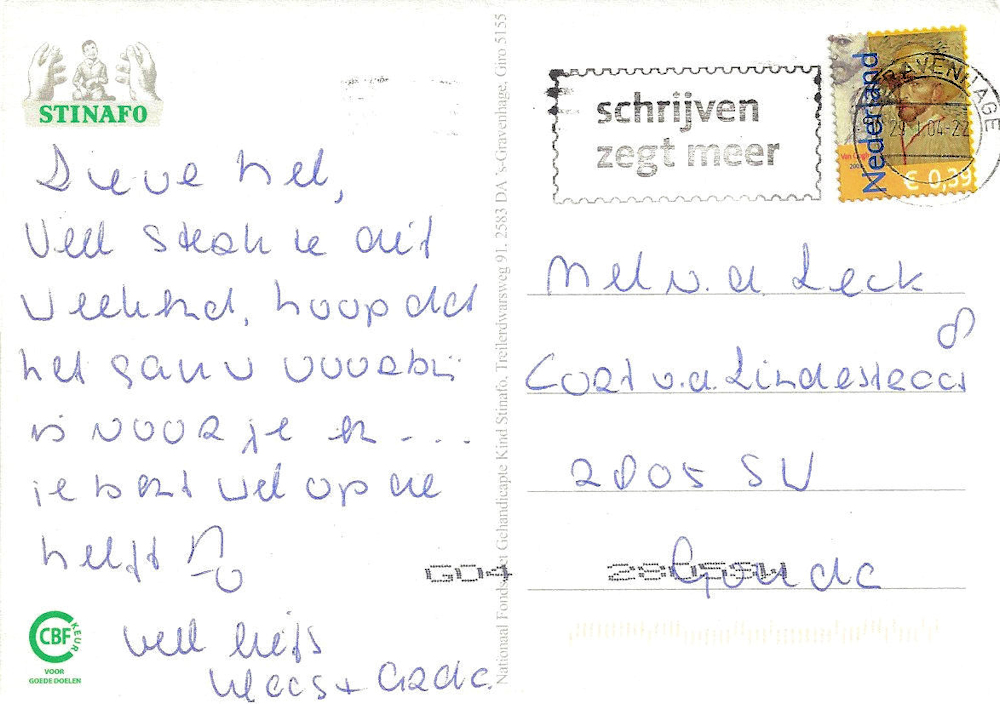 STINAFO
Lieve Nel,
Veel sterkte dit
weekend, hoop dat
het gauw voorbij
is voor je en ....
je bent wel op de
helft !!
veel liefs
Klaas + Gerda.
CBF
KEUR
VOOR
GOEDE DOELEN
Nationaal Fonds het Gehandicapte Kind Stinafo, Treilerdwarsweg 91, 2583 DA 's-Gravenhage, Giro 5155
schrijven
zegt meer
'S GRAVENHAGE
29.1.04-22
Nederland
Van Gogh
€ 0,39
Nel v.d. Leck
8
Coert v.d. Lindestraat
2805 SV
Gouda
GO4 2805SW